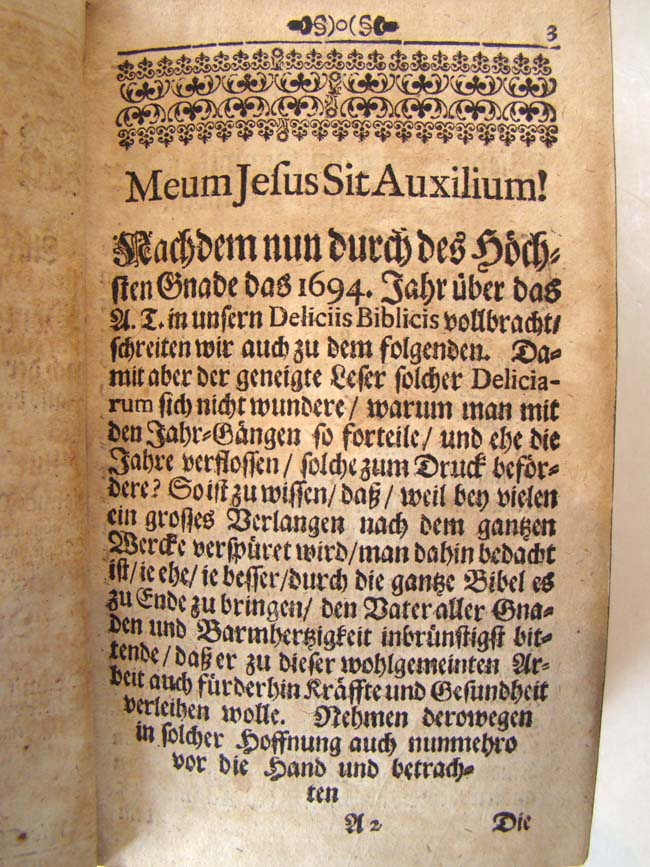 3
Meum Jeſus Sit Auxilium!
Nachdem nun durch des Höch-
ſten Gnade das 1694. Jahr über das
A. T. in unſern Deliciis Biblicis vollbracht/
ſchreiten wir auch zu dem folgenden. Da-
mit aber der geneigte Leſer ſolcher Delicia-
rum ſich nicht wundere/ warum man mit
den Jahr-Gängen ſo forteile/ und ehe die
Jahre verfloſſen/ ſolche zum Druck beför-
dere? So iſt zu wiſſen/ daß/ weil bey vielen
ein groſſes Verlangen nach dem gantzen
Wercke verſpüret wird/ man dahin bedacht
iſt/ ie ehe/ ie beſſer/ durch die gantze Bibel es
zu Ende zu bringen/ den Vater aller Gna-
den und Barmhertzigkeit inbrünſtigſt bit-
tende/ daß er zu dieſer wohlgemeinten Ar-
beit auch fürderhin Kräffte und Geſundheit
verleihen wolle. Nehmen derowegen
in ſolcher Hoffnung auch nunmehro
vor die Hand und betrach-
ten
A 2 Die